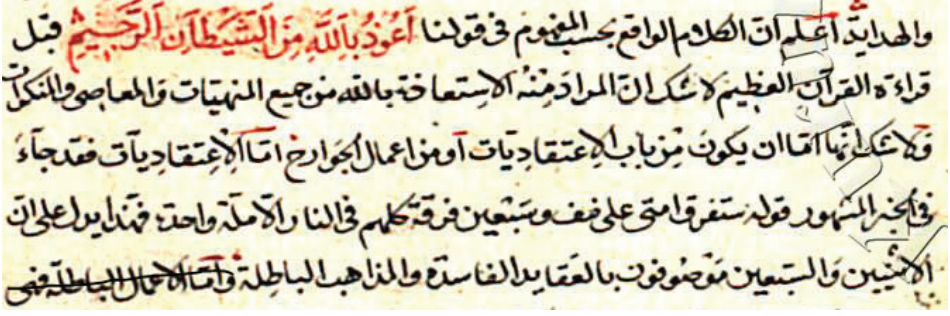 والهداية اعلم ان الكلام الواقع بحسب المفهوم فى قولنا أَعُوذُ بِاَللَّهِ مِنَ اَلشَّيْطَانِ اَلرَّجِيمِ قبل
قراءة القرآن العظيم لا شك ان المراد مِنْهُ الاِستعاذة بالله من جميع المنهيات وَالمعاصى والمنكرات
وَلا شك انها اما ان يكون مِنْ باب الاِعتقادِيَات اَو من اعمال الجوارح امّا اَلاِعتِقادِيات فقد جاءَ
فى الخبر المشهور قوله ستفرق امتى على نيف وسَبْعِين فرقة كلهم فى النار الا ملّة واحدة فهَذا يدل على انّ
الاِثنيين وَالسّبعين مَوْصُوفون بالعَقايد الفاسدة والمذاهب الباطلة وَامّا الاعمال الباطلة فهى